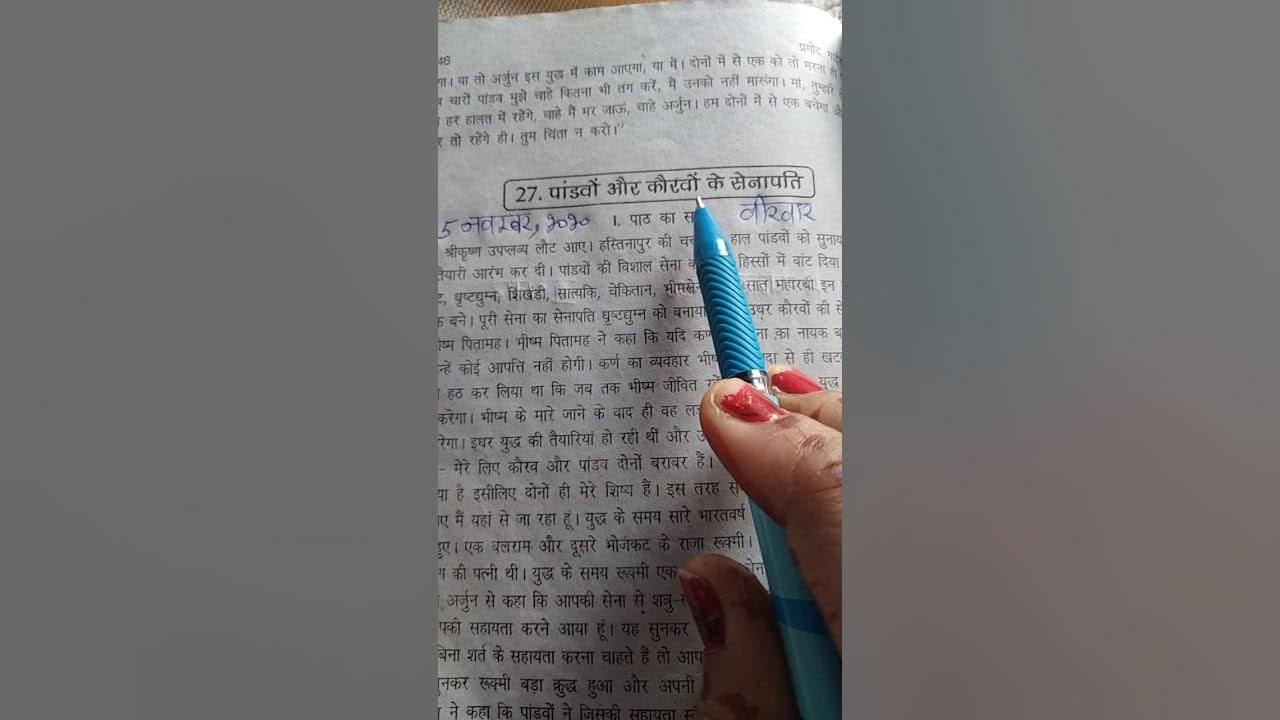 46 प्रमोद
या तो अर्जुन इस युद्ध में काम आएगा, या मैं। दोनों में से एक को तो मरना ही
चारों पांडव मुझे चाहे कितना भी तंग करें, मैं उनको नहीं मारूंगा। मां, तुम्हारे
हर हालत में रहेंगे, चाहे मैं मर जाऊं, चाहे अर्जुन। हम दोनों में से एक बचेगा
तो रहेंगे ही। तुम चिंता न करो।"
27. पांडवों और कौरवों के सेनापति
5 नवम्बर, २०२० I. पाठ का वीरवार
श्रीकृष्ण उपप्लव्य लौट आए। हस्तिनापुर की हाल पांडवों को
तैयारी आरंभ कर दी। पांडवों की विशाल सेना हिस्सों में बांट दिया
धृष्टद्युम्न, शिखंडी, सात्यकि, चेकितान, सात महारथी इन
बने। पूरी सेना का सेनापति धृष्टद्युम्न को बनाया उधर कौरवों की
पितामह। भीष्म पितामह ने कहा कि यदि का नायक
कोई आपत्ति नहीं होगी। कर्ण का व्यवहार से ही
हठ कर लिया था कि जब तक भीष्म जीवित युद्ध
करेगा। भीष्म के मारे जाने के बाद ही वह
इधर युद्ध की तैयारियां हो रही थीं और
- मेरे लिए कौरव और पांडव दोनों बराबर हैं।
है इसीलिए दोनों ही मेरे शिष्य हैं। इस तरह
मैं यहां से जा रहा हूं। युद्ध के समय सारे भारतवर्ष
एक बलराम और दूसरे भोजंकट के राजा रूक्मी।
की पत्नी थी। युद्ध के समय रूक्मी एक
अर्जुन से कहा कि आपकी सेना से शत्रु-
सहायता करने आया हूं। यह सुनकर
बिना शर्त के सहायता करना चाहते हैं तो
रूक्मी बड़ा क्रुद्ध हुआ और अपनी
ने कहा कि पांडवों ने जिसकी सहायता